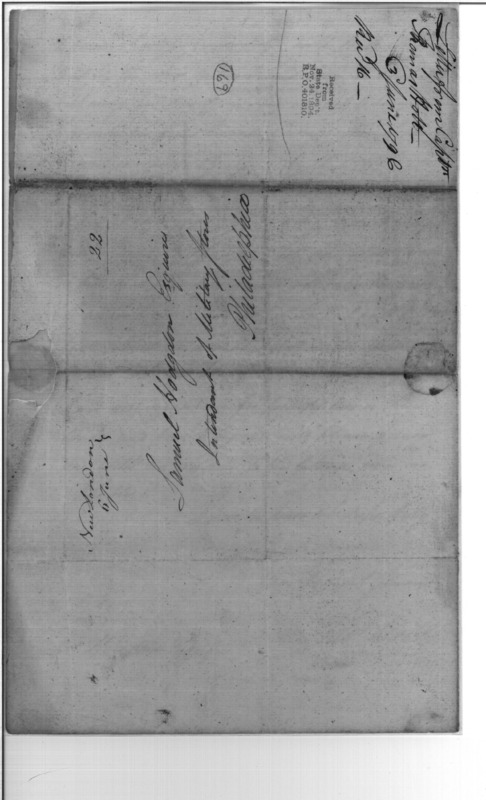 Letter from Capt
Thomas
6 June 1796
Rec'd 16 —
Received
from
State Dep't.
Nov. 24, 1904.
R.P.O. 401810.
169
22
Samuel Hodgdon Esquire
Intendant of Military Stores
Philadelphia
New London
6 June